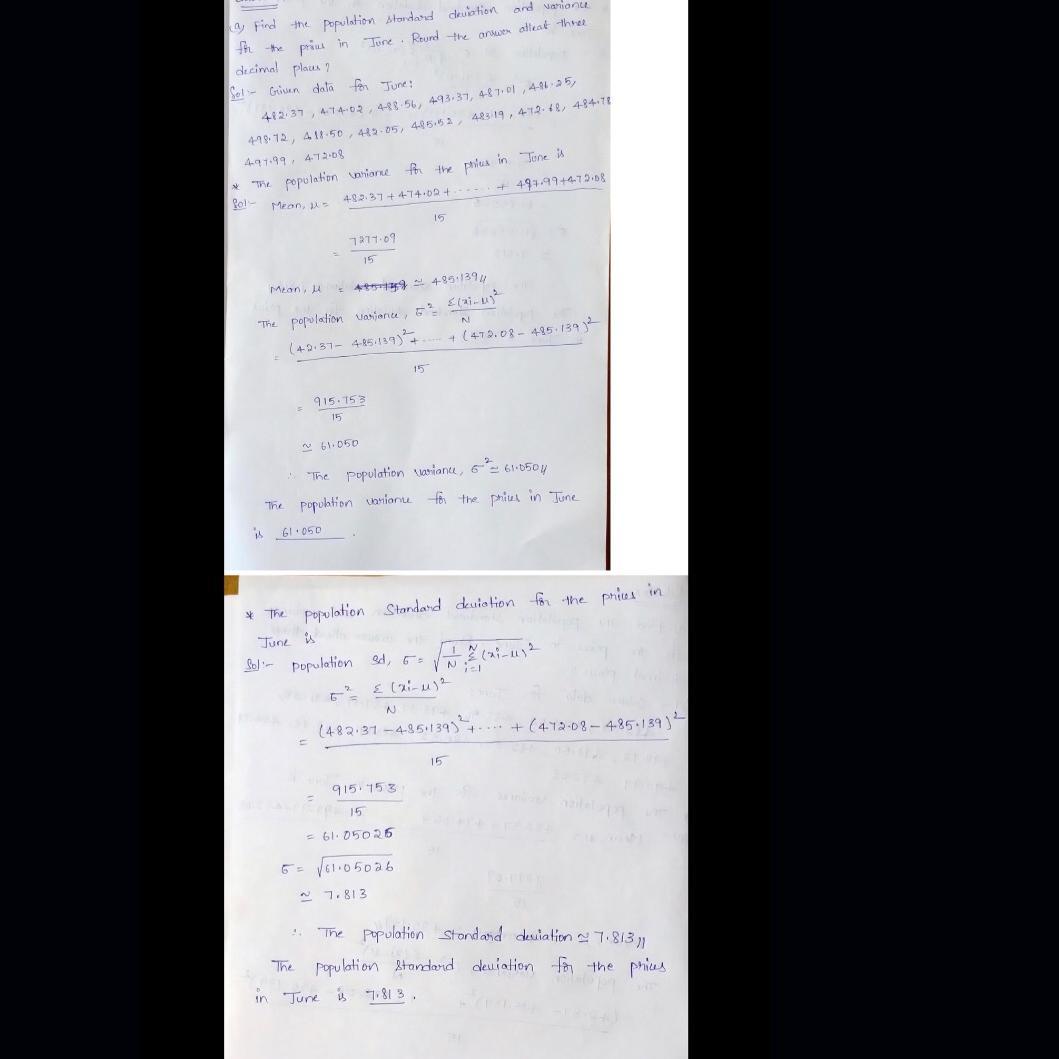 (a) Find the population standard deviation and variance
for the prius in June. Round the answer atleat three
decimal places?
Sol:- Given data for June:
482.37, 474.02, 488.56, 493.37, 487.01, 486.25,
498.72, 418.50, 482.05, 485.52, 483.19, 472.68, 484.78
497.99, 472.08
* The population variance for the prius in June is
Sol:- Mean, μ = 482.37 + 474.02 + ...... + 497.99 + 472.08
15
= 7277.09
15
Mean, μ = ≃ 485.139//
The population variance, σ² = Σ(xi-μ)²
N
= (42.37 - 485.139)² + ..... + (472.08 - 485.139)²
15
= 915.753
15
≃ 61.050
∴ The population variance, σ² ≃ 61.050//
The population variance for the prices in June
is 61.050 .
* The population Standard deviation for the prices in
June is
Sol:- population sd, σ = √1/N Σ i=1 N (xi-μ)²
σ² = Σ(xi-μ)²
N
= (482.37 - 485.139)² + ..... + (472.08 - 485.139)²
15
= 915.753
15
= 61.05026
σ = √61.05026
≃ 7.813
∴ The population standard deviation ≃ 7.813//
The population standard deviation for the prices
in June is 7.813 .